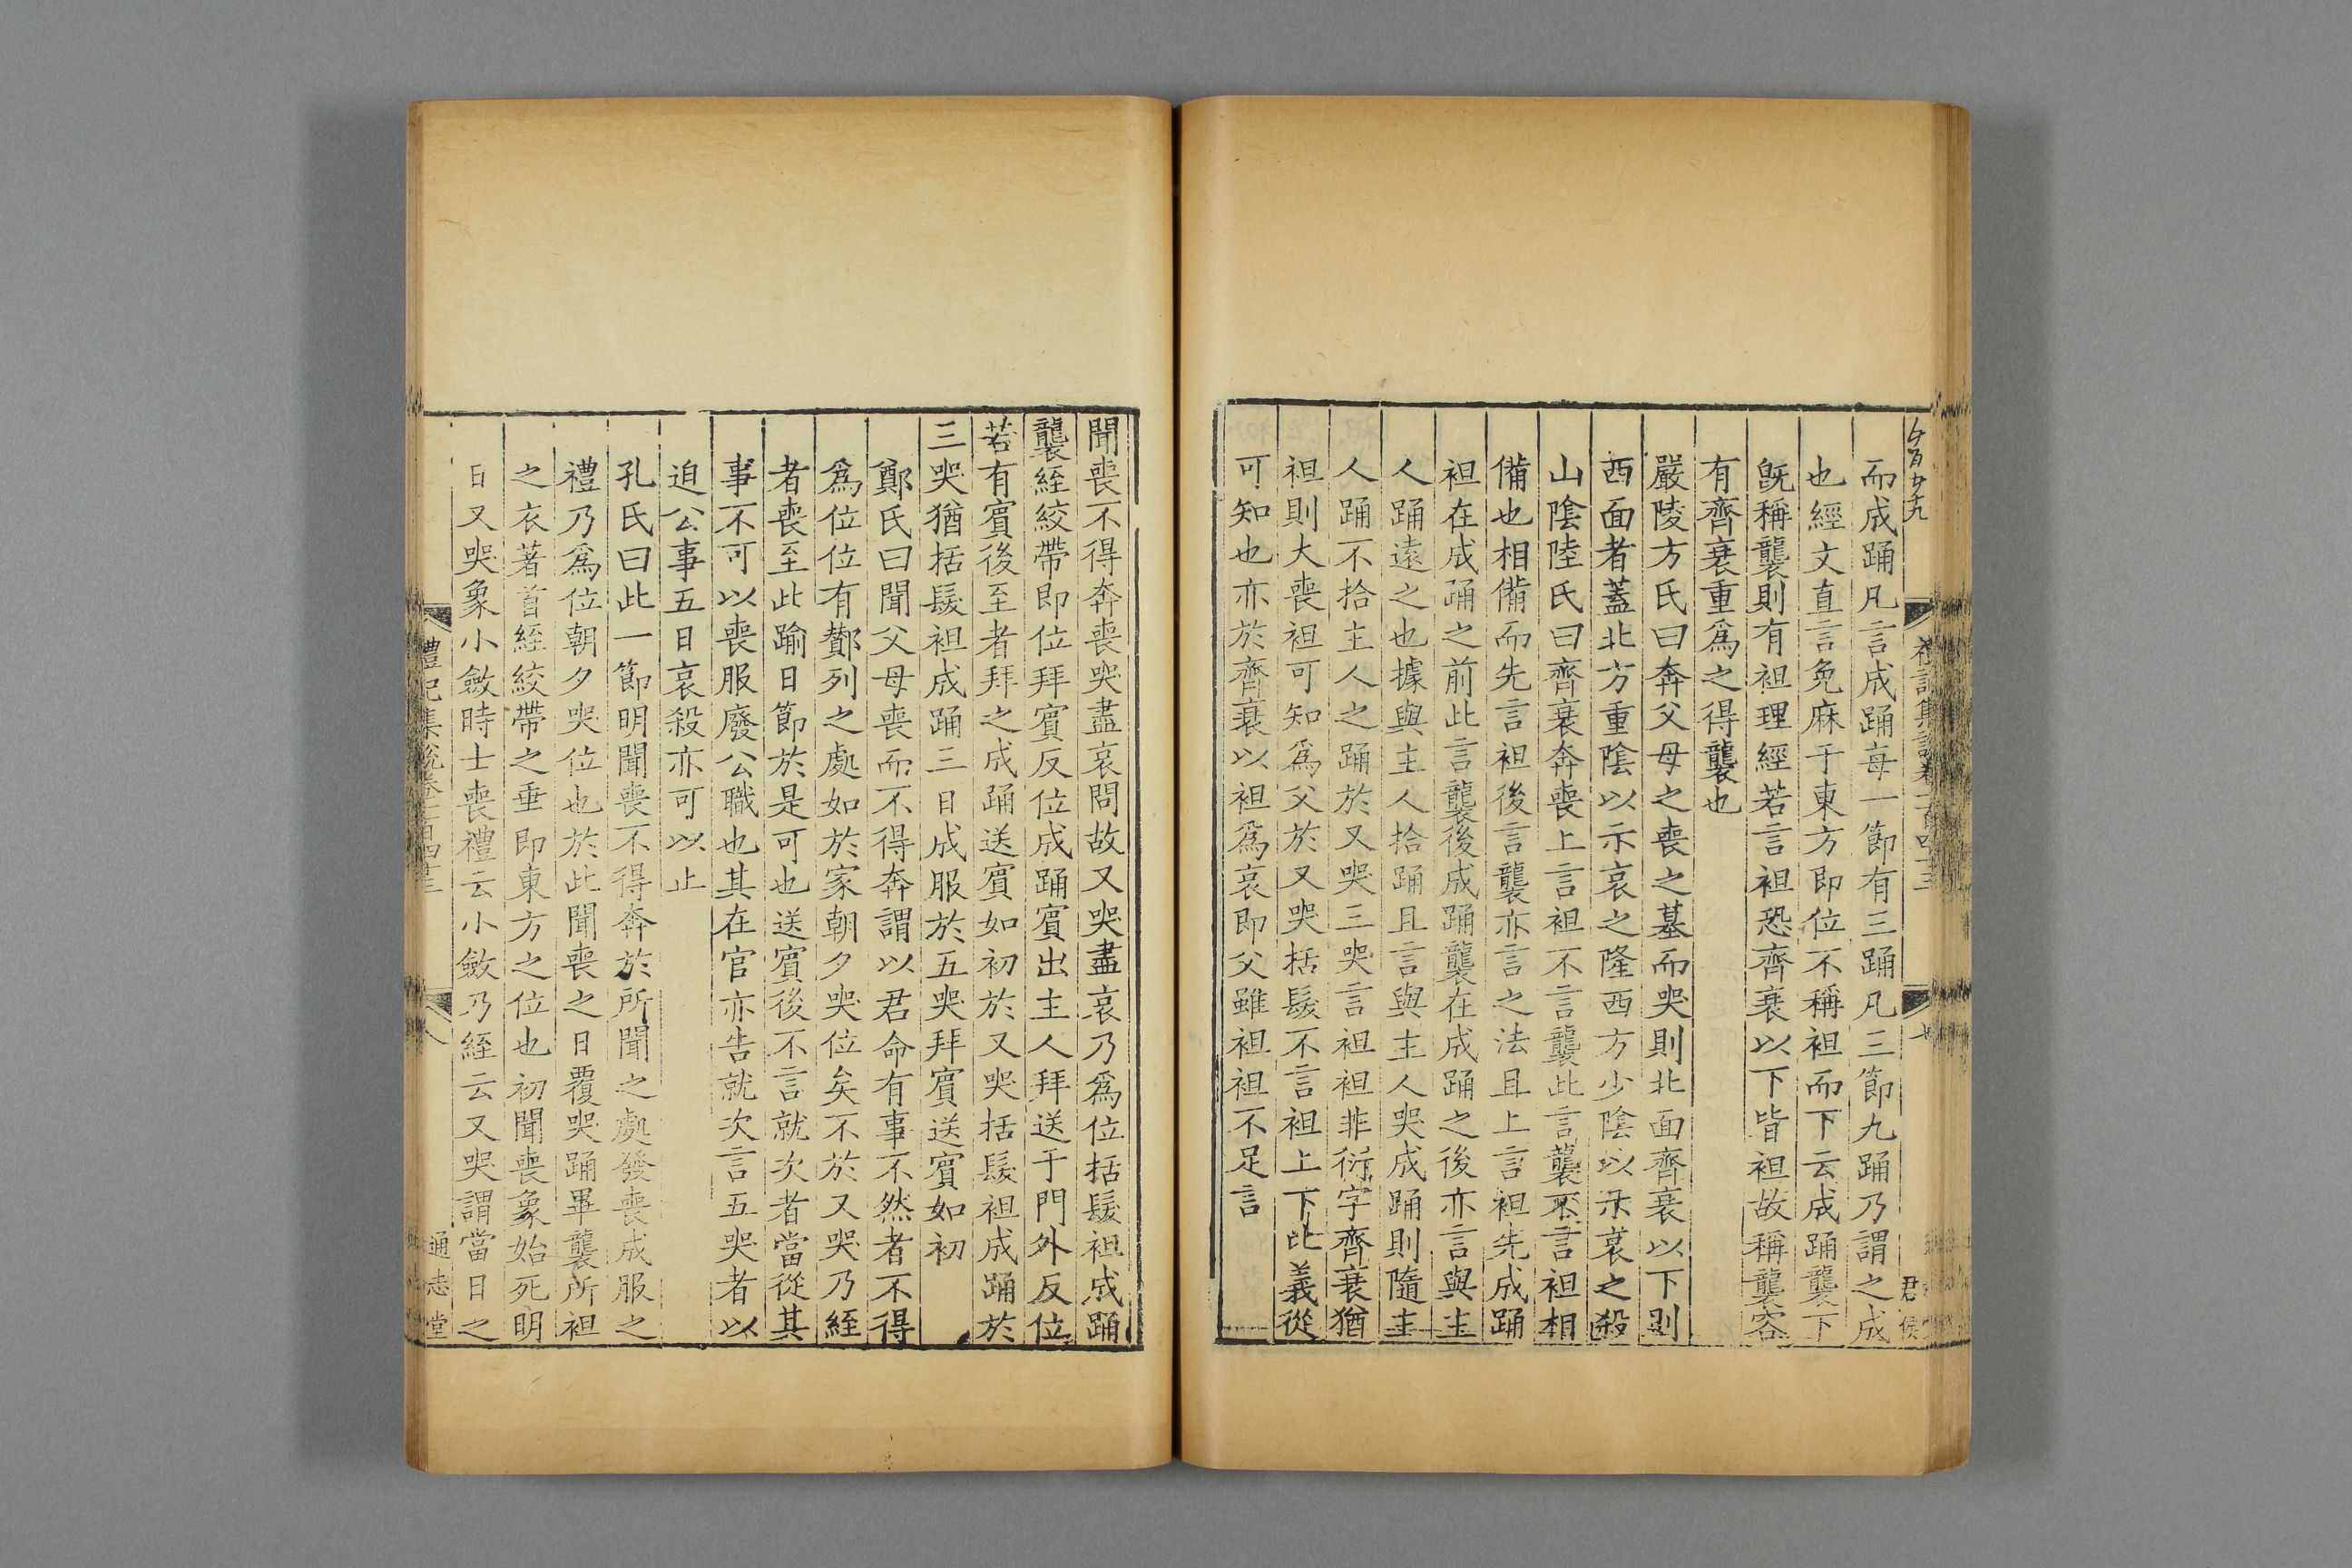 而成踊凡言成踊每一節有三踊凡三節九踊乃謂之成
也經文直言免麻于東方即位不稱袒而下云成踊襲下
旣稱襲則有袒理經若言袒恐齊衰以下皆袒故稱襲容
有齊衰重爲之得襲也
嚴陵方氏曰奔父母之喪之墓而哭則北面齊衰以下則
西面者蓋北方重陰以示哀之隆西方少陰以示哀之殺
山陰陸氏曰齊衰奔喪上言袒不言襲此言襲不言袒相
備也相備而先言袒後言襲亦言之法且上言袒先成踊
袒在成踊之前此言襲後成踊襲在成踊之後亦言與主
人踊遠之也據與主人拾踊且言與主人哭成踊則隨主
人踊不拾主人之踊於又哭三哭言袒袒非衍字齊衰猶
袒則大喪袒可知爲父於又哭括髮不言袒上下比義從
可知也亦於齊衰以袒爲哀即父雖袒袒不足言
聞喪不得奔喪哭盡哀問故又哭盡哀乃爲位括髮袒成踊
襲絰絞帶即位拜賓反位成踊賓出主人拜送于門外反位
若有賓後至者拜之成踊送賓如初於又哭括髮袒成踊於
三哭猶括髮袒成踊三日成服於五哭拜賓送賓如初
鄭氏曰聞父母喪而不得奔謂以君命有事不然者不得
爲位位有酇列之處如於家朝夕哭位矣不於又哭乃絰
者喪至此踰日節於是可也送賓後不言就次者當從其
事不可以喪服廢公職也其在官亦告就次言五哭者以
迫公事五日哀殺亦可以止
孔氏曰此一節明聞喪不得奔於所聞之處發喪成服之
禮乃爲位朝夕哭位也於此聞喪之日覆哭踊畢襲所袒
之衣著首絰絞帶之垂即東方之位也初聞喪象始死明
日又哭象小斂時士喪禮云小斂乃絰云又哭謂當日之
禮記集說卷一百四十三
八
通志堂